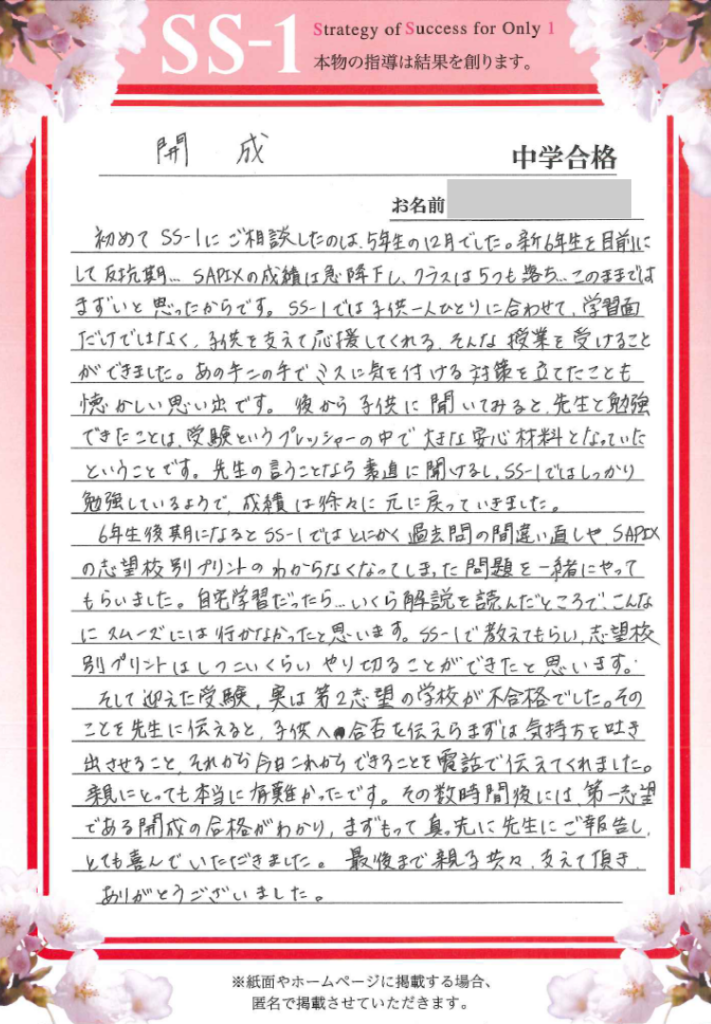 SS-1
Strategy of Success for Only 1
本物の指導は結果を創ります。
開 成
中学合格
お名前
初めて SS-1に ご相談したのは、5年生の12月でした。新6年生を目前に
して反抗期… SAPIXの成績は急降下し、クラスは5つも落ち…このままでは
まずいと思ったからです。SS-1では子供一人ひとりに合わせて、学習面
だけではなく、子供を支えて応援してくれる、そんな授業を受けること
ができました。あの手この手でミスに気を付ける対策を立てたことも
懐かしい思い出です。後から子供に聞いてみると、先生と勉強
できたことは、受験というプレッシャーの中で大きな安心材料となっていた
ということです。先生の言うことなら素直に聞けるし、SS-1ではしっかり
勉強しているようで、成績は徐々に元に戻っていきました。
6年生後期になるとSS-1ではとにかく過去問の間違い直しや、SAPIX
の志望校別プリントのわからなくなってしまった問題を一緒にやって
もらいました。自宅学習だったら…いくら解説を読んだところで、こんな
にスムーズには行かなかったと思います。SS-1で教えてもらい、志望校
別プリントはしつこいくらいやり切ることができたと思います。
そして迎えた受験、実は第2志望の学校が不合格でした。その
ことを先生に伝えると、子供へ合否を伝えらまずは気持ちを吐き
出させること、それから今日これからできることを電話で伝えてくれました。
親にとっても本当に有難かったです。その数時間後には、第一志望
である開成の合格がわかり、まずもって真先に先生にご報告し、
とても喜んでいただきました。最後まで親子共々、支えて頂き、
ありがとうございました。
※紙面やホームページに掲載する場合、
匿名で掲載させていただきます。